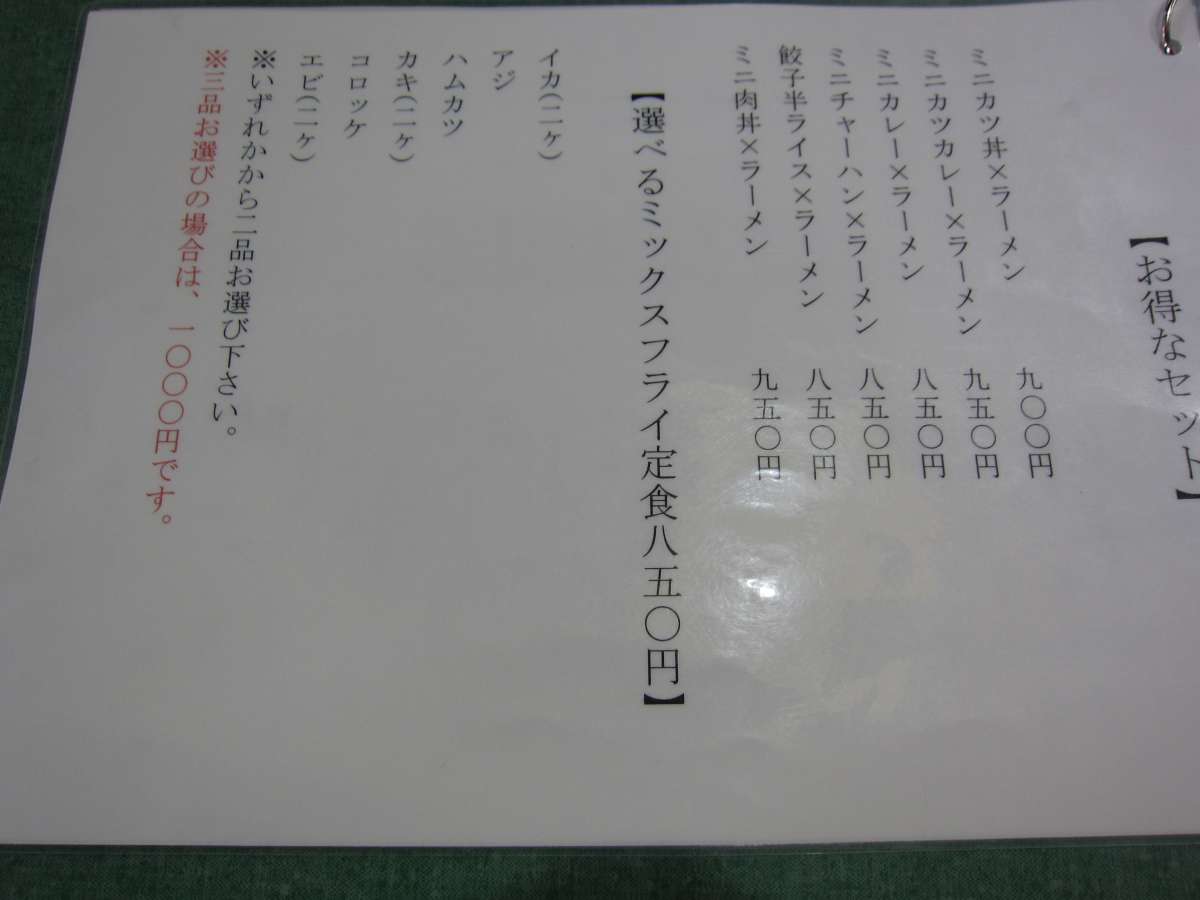 【お得なセット】
ミニカツ丼×ラーメン 九〇〇円
ミニカツカレー×ラーメン 九五〇円
ミニカレー×ラーメン 八五〇円
ミニチャーハン×ラーメン 八五〇円
餃子半ライス×ラーメン 八五〇円
ミニ肉丼×ラーメン 九五〇円
【選べるミックスフライ定食八五〇円】
イカ(二ヶ)
アジ
ハムカツ
カキ(二ヶ)
コロッケ
エビ(二ヶ)
※いずれかから二品お選び下さい。
※三品お選びの場合は、一〇〇〇円です。